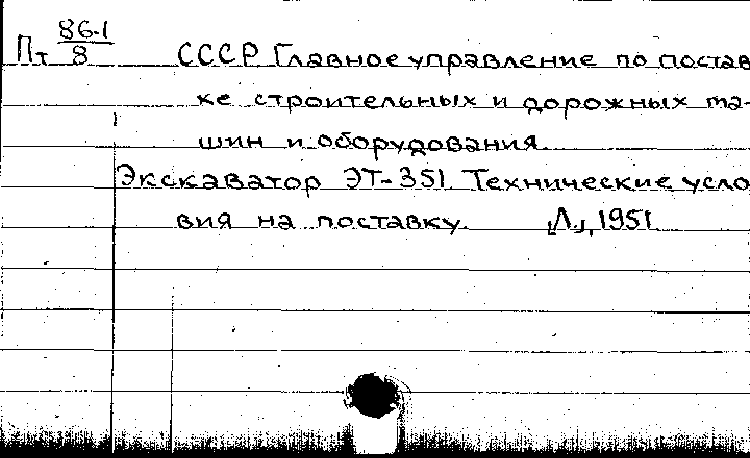 Пт 86-1/8 СССР Главное управление по постав
ке строительных и дорожных ма-
шин и оборудования.
Экскаватор ЭТ-351. Технические усло
вия на поставку. [Л.], 1951